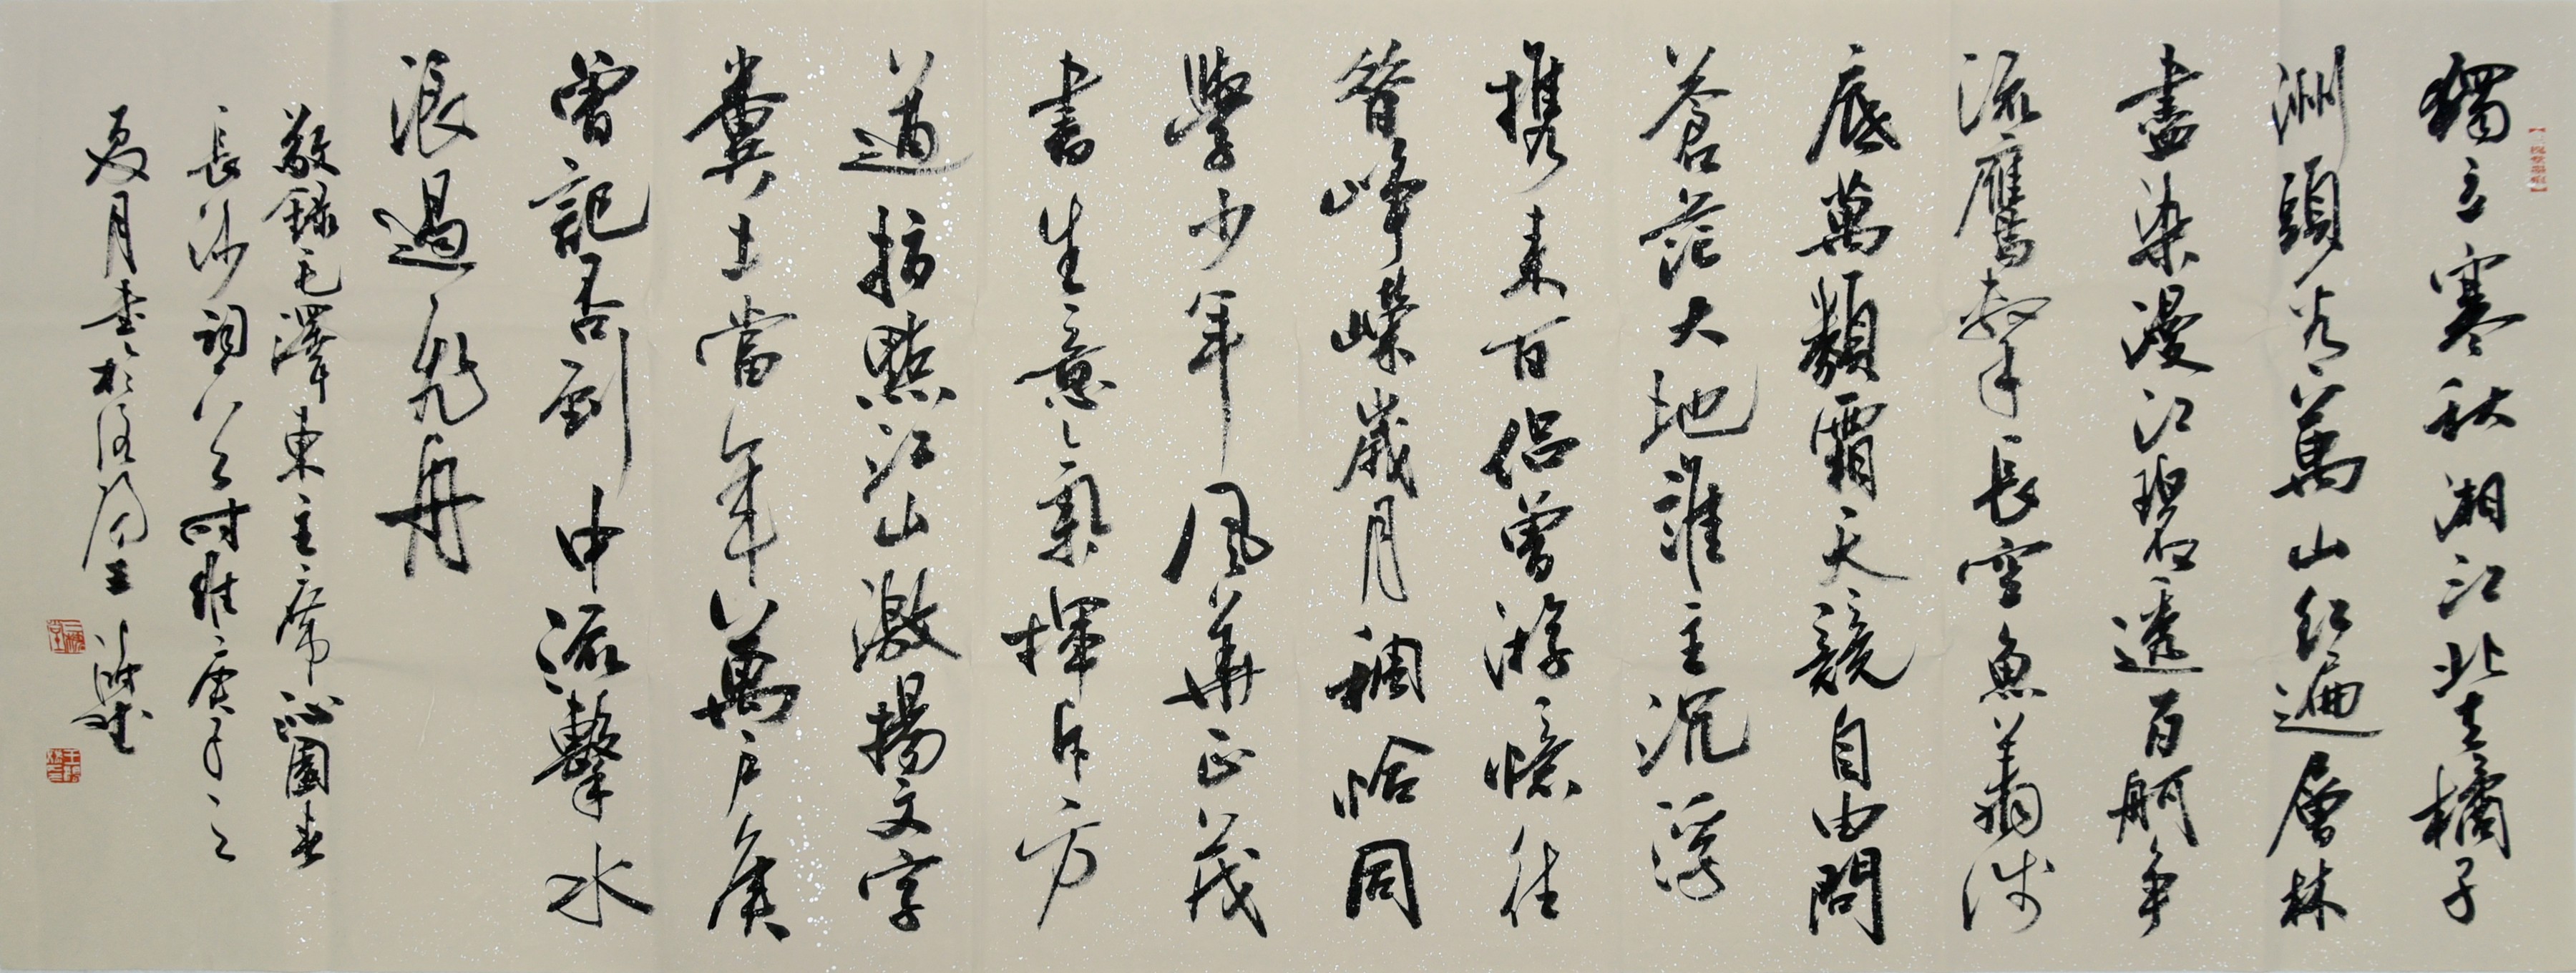 獨立寒秋湘江北去橘子
洲頭看萬山紅遍層林
盡染漫江碧透百舸争
流鷹擊長空魚翔浅
底萬類霜天競自由問
蒼茫大地誰主沉浮
携来百侣曾游憶往
昔峥嶸歲月稠恰同
學少年風華正茂
書生意氣揮斥方
遒指點江山激揚文字
糞土當年萬户侯
曾記否到中流擊水
浪遏飛舟
敬録毛澤東主席沁園春
長沙詞時維庚子之
夏月書於洛陽王